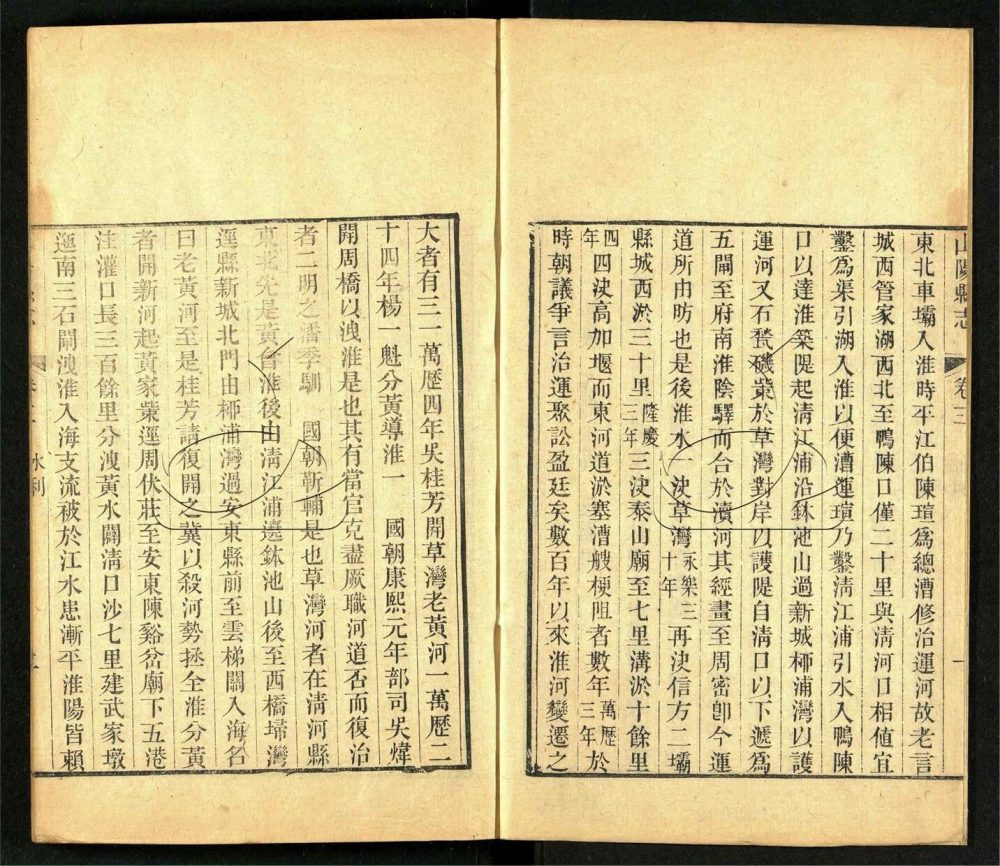 山陽縣志
卷三
一
東北車壩入淮時平江伯陳瑄爲總漕修治運河故老言
城西管家湖西北至鴨陳口僅二十里與清河口相值宜
鑿爲渠引湖入淮以便漕運瑄乃鑿清江浦引水入鴨陳
口以達淮築隄起清江浦沿鉢池山過新城柳浦灣以護
運河又石甃磯觜於草灣對岸以護隄自清口以下遞爲
五閘至府南淮陰驛而合於瀆河其經畫至周密卽今運
道所由昉也是後淮水一決草灣永樂三十年再決信方二壩
縣城西淤三十里隆慶三年三決泰山廟至七里溝淤十餘里
四年四決高加堰而東河道淤塞漕艘梗阻者數年萬歷三年於
時朝議爭言治運聚訟盈廷矣數百年以來淮河變遷之
大者有三一萬歷四年吳桂芳開草灣老黃河一萬歷二
十四年楊一魁分黃導淮一　國朝康熙元年部司吳煒
開周橋以洩淮是也其有當官克盡厥職河道否而復治
者二明之潘季馴　國朝靳輔是也草灣河者在清河縣
東北先是黃會淮後由清江浦遶鉢池山後至西橋埽灣
逕縣新城北門由柳浦灣過安東縣前至雲梯關入海名
曰老黃河至是桂芳請復開之冀以殺河勢拯全淮分黃
者開新河起黃家觜逕周伏莊至安東陳谿岔廟下五港
注灌口長三百餘里分洩黃水闢清口沙七里建武家墩
迤南三石閘洩淮入海支流被於江水患漸平淮陽皆賴
水利